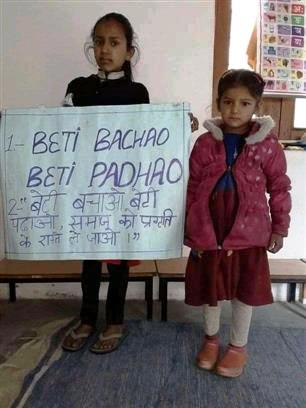 1- BETI BACHAO
BETI PADHAO
2." बेटी बचाओ बेटी
पढाओ, समाज को प्रगति
के रास्ते ले जाओ ।"